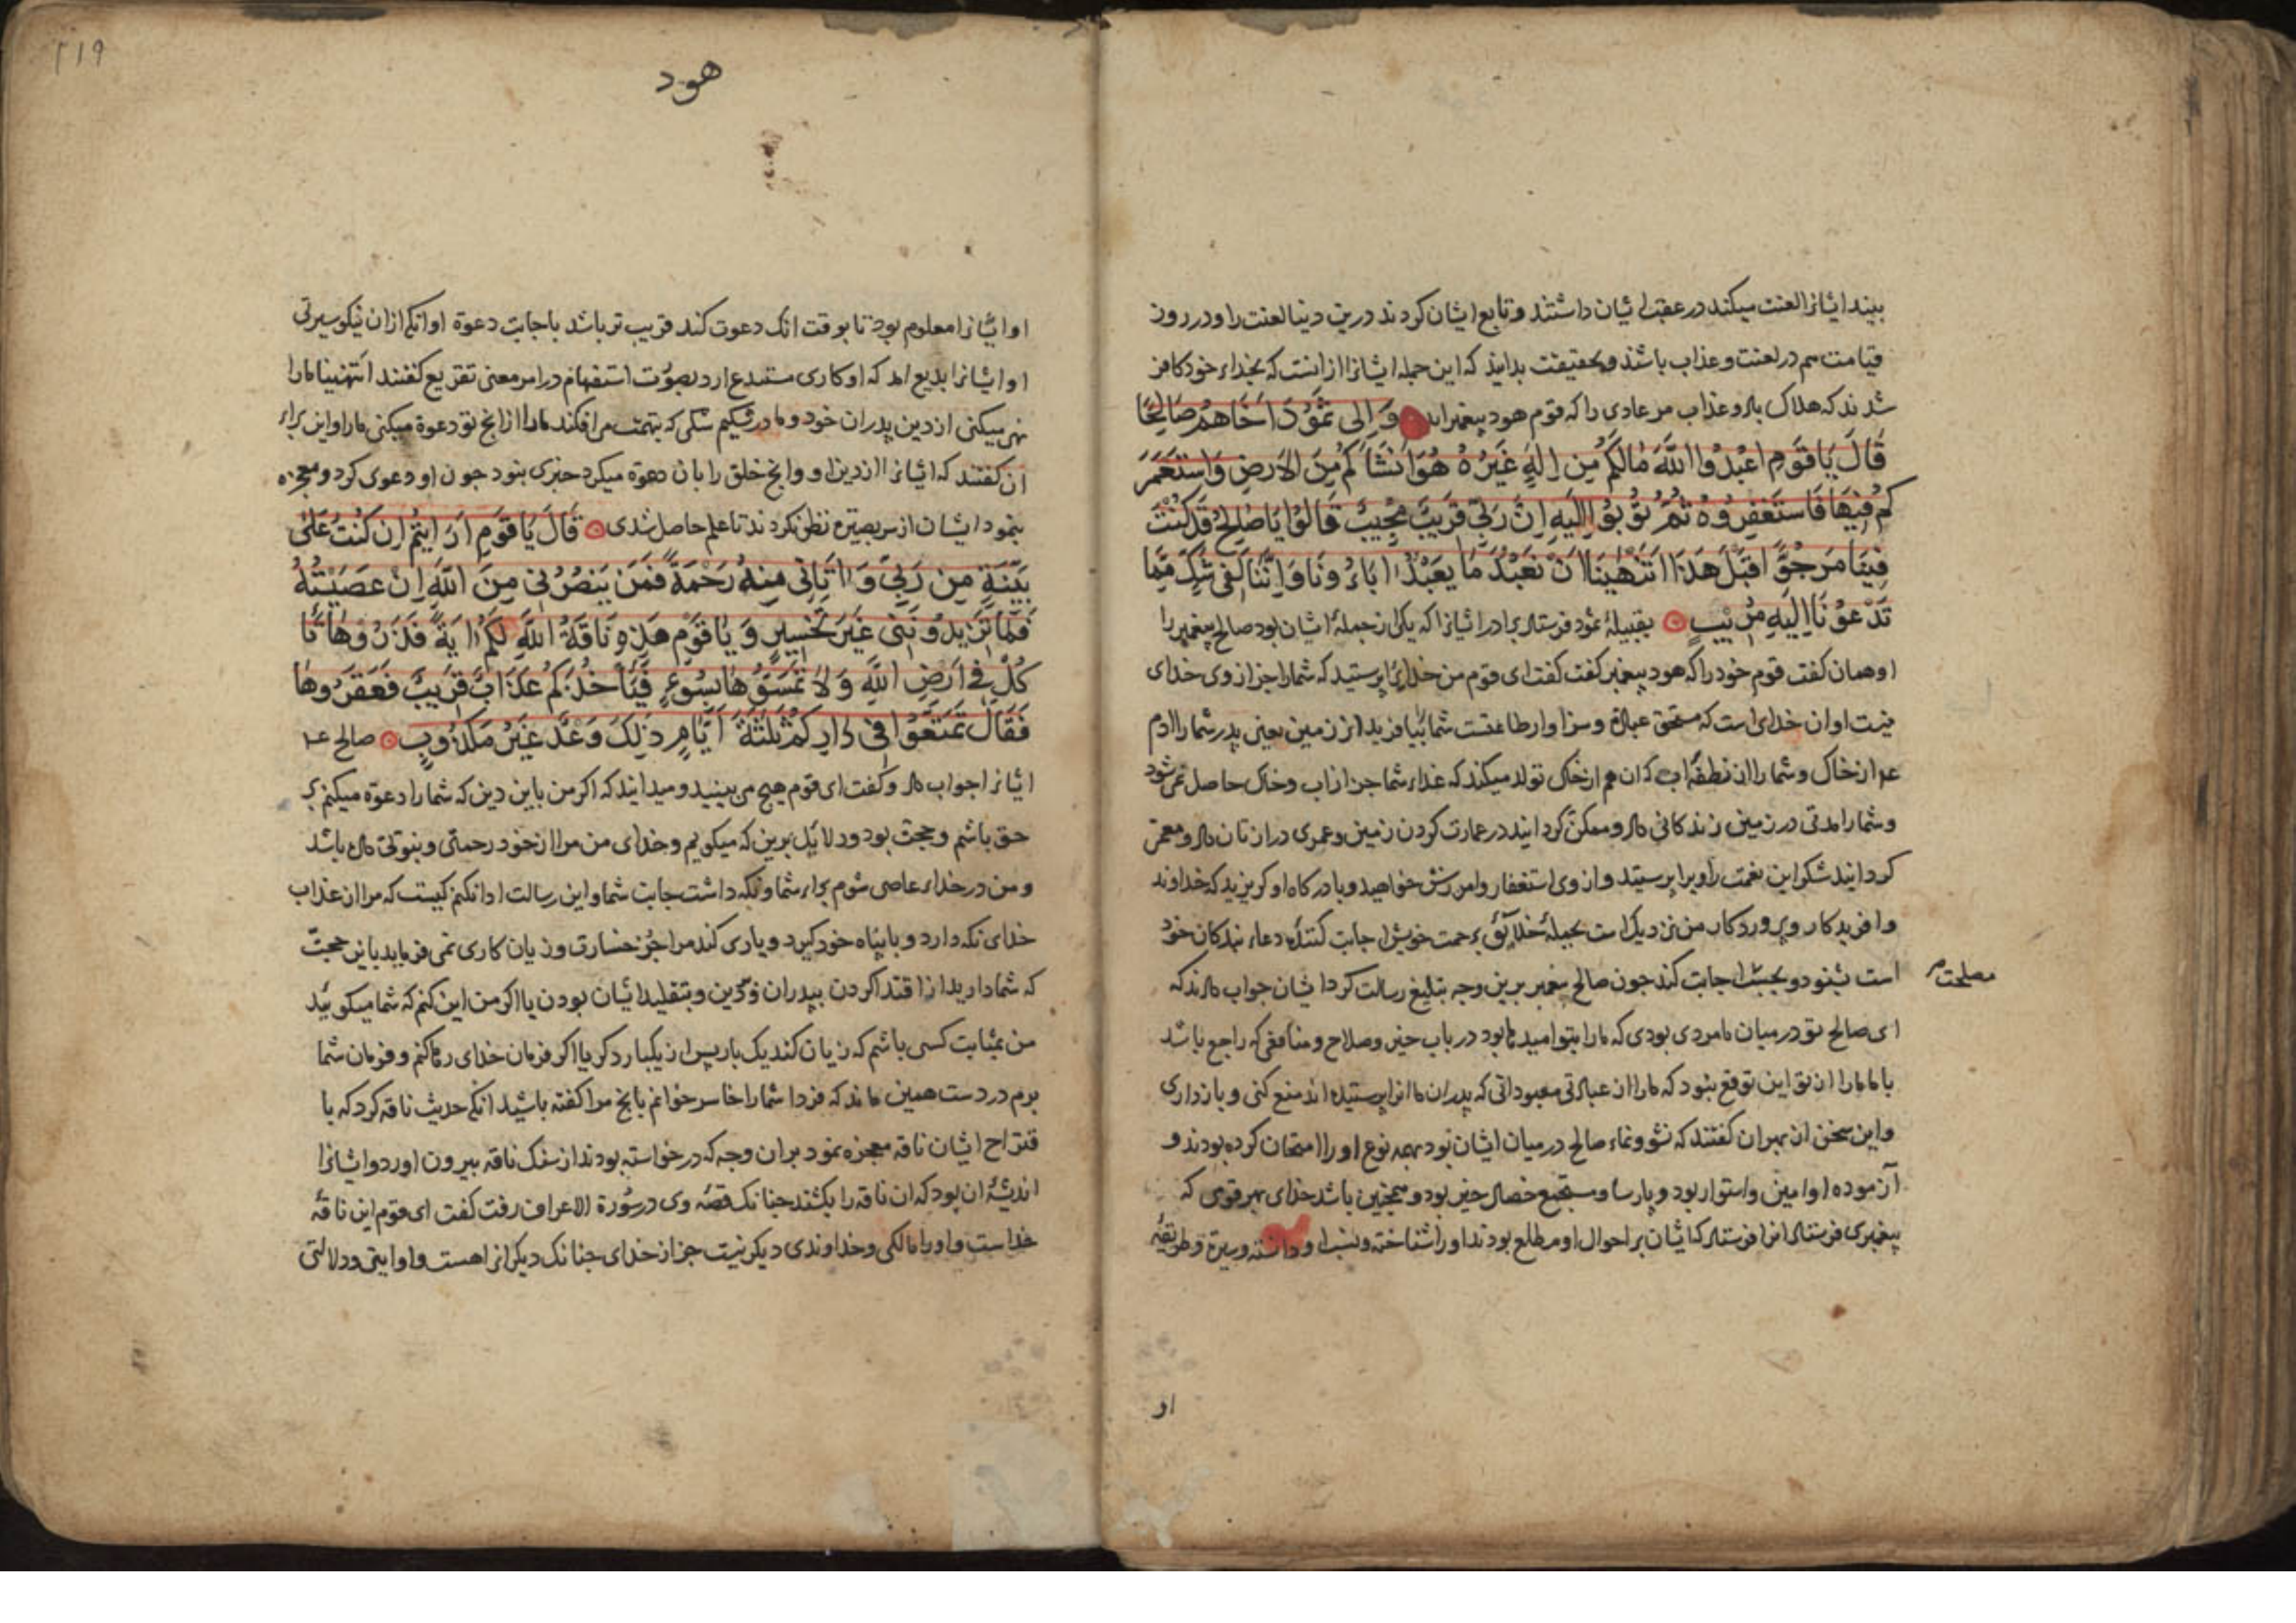 بیند ایشانرا لعنت میکند در عقب ایشان داشتند و تابع ایشان کردند درین دنیا لعنت را و در روز
قیامت هم در لعنت و عذاب باشند و بحقیقت بدانید که این جمله ایشانرا ازانست که بخداء خود کافر
شدند که هلاک باد و عذاب مر عادی را که قوم هود پیغمبراند وَاِلی ثَمُوْدَ اَخَاهُمْ صَالِحًا
قَالَ یَا قَوْمِ اعْبُدُوا اللّٰهَ مَالَکُمْ مِن اِلٰهٍ غَیْرُهُ هُوَ اَنْشَاَکُمْ مِنَ الاَرضِ وَاسْتَعْمَرَ
کُمْ فِیْهَا فَاسْتَغْفِرُوهُ ثُمَّ تُوْبُوْا اِلَیْهِ اِنَّ رَبِّی قَرِیْبٌ مُجِیْبٌ قَالُوْا یَا صَالِحُ قَدْ کُنْتَ
فِیْنَا مَرْجُوًّا قَبْلَ هٰذَا اَتَنْهٰینَا اَنْ نَعْبُدَ مَا یَعْبُدُ اٰبَاؤُنَا وَاِنَّنَا لَفِی شَکٍّ مِمَّا
تَدْعُوْنَا اِلَیْهِ مُرِیْبٍ بقبیلهٔ ثمود فرستاد برادر ایشانرا که یکی از جملهٔ ایشان بود صالح پیغمبر را
او همان گفت قوم خود را که هود پیغمبر گفت گفت ای قوم من خدایرا پرستید که شما را جز از وی خدای
نیست او آن خدای است که مستحق عبادة و سزاوار طاعتست شما را بیافرید از زمین یعنی پدر شما را آدم
عم از خاک و شما را از نطفهٔ اب که ان هم از خاک تولد میکند که غذاء شما جز از اب و خاک حاصل نمی شود
و شما را مدتی در زمین زندکانی داد و ممکن کردانید در عمارت کردن زمین و عمری دراز تان داد و معمر
کردانید شکر این نعمت را ویرا پرستید و از وی استغفار و امرزش خواهید و با درکاه او کریزید که خداوند
و افریدکار و پروردکار من نزدیک است بجملهٔ خلایق برحمت خویش اجابت کنندهٔ دعاء بندکان خود
است بشنود و اجابت کند جون صالح پیغمبر برین وجه تبلیغ رسالت کرد ایشان جواب دادند که
مصلحت
ای صالح تو در میان ما مردی بودی که ما را بتو امیدها بود در باب خیر و صلاح و منافعی که راجع باشد
با ما ما را از تو این توقع نبود که ما را از عبادتی معبوداتی که پدران ما انرا پرستیده اند منع کنی و بازداری
و این سخن از بهر ان کفتند که نشو و نماء صالح در میان ایشان بود بهمه نوع او را امتحان کرده بودند و
آزموده او امین و استوار بود و پارسا و مستجمع خصال خیر بود و همجنین باشد خدای بهر قومی که
پیغمبری فرستاد انرا فرستاد که ایشان بر احوال او مطلع بودند او را شناخته و نسب او دانسته و سیرة و طریقهٔ
او
۲۱۹
هود
او ایشانرا معلوم بود تا بوقت انک دعوت کند قریب تر باشد باجابت دعوة او انکه از ان نیکو سیرتی
او ایشانرا بدیع امد که او کاری مستبدع ارد بصورت استفهام در امر معنی تقریع کفتند اتنهینا ما را
نهی میکنی از دین پدران خود و ما در شکیم شکی که بتهمت می افکند ما را از انج تو دعوة میکنی ما را و این براء
آن کفتند که ایشانرا از دین او و انج خلق را بان دعوة میکرد خبری نبود جون او دعوی کرد و معجزه
بنمود ایشان از سر بصیرة نظر نکردند تا علم حاصل شدی قَالَ یَا قَوْمِ اَرَاَیْتُمْ اِن کُنْتُ عَلٰی
بَیِّنَةٍ مِن رَبِّی وَ اٰتَانِی مِنْهُ رَحْمَةً فَمَن یَنصُرُنِی مِنَ اللّٰهِ اِنْ عَصَیْتُهُ
فَمَا تَزِیدُونَنِی غَیْرَ تَخْسِیرٍ وَ یَا قَوْمِ هٰذِهِ نَاقَةُ اللّٰهِ لَکُمْ اٰیَةً فَذَرُوْهَا تَا
کُلْ فِی اَرْضِ اللّٰهِ وَ لَا تَمَسُّوْهَا بِسُوءٍ فَیَاْخُذَکُمْ عَذَابٌ قَرِیبٌ فَعَقَرُوهَا
فَقَالَ تَمَتَّعُوا فِی دَارِکُمْ ثَلٰثَةَ اَیَّامٍ ذٰلِکَ وَعْدٌ غَیْرُ مَکْذُوبٍ صالح عم
ایشانرا جواب داد و کفت ای قوم هیج می بینید و میدانید که اکر من باین دین که شما را دعوة میکنم بر
حق باشم و حجت بود و دلایل برین که میکویم و خدای من مرا از خود رحمتی و بنوتی داده باشد
و من در خداء عاصی شوم براء شما و نکه داشت جانب شما و این رسالت ادا نکنم کیست که مرا از عذاب
خدای نکه دارد و با پناه خود کیرد و یاری کند مرا جز خسارت و زیان کاری نمی فزاید یا این حجت
که شما دارید از اقتدا کردن بپدران در دین و بتقلید ایشان بودن یا اکر من این کنم که شما میکویید
من بمثابت کسی باشم که زیان کند یک بار پس از یکبار دکر یا اکر فرمان خدای رها کنم و فرمان شما
برم در دست همین ماند که فردا شما را خاسر خوانم بانج مرا کفته باشید انکه حدیث ناقه کرد که با
قتراح ایشان ناقه معجزه نمود بران وجه که درخواسته بودند از سنک ناقه بیرون اورد و ایشانرا
اندیشهٔ ان بود که ان ناقه را بکشند جنانک قصهٔ وی در سُورة الاعراف رفت کفت ای قوم این ناقهٔ
خداست و او را مالکی و خداوندی دیکر نیست جز از خدای جنانک دیکرانرا هست و او ایتی و دلالتی